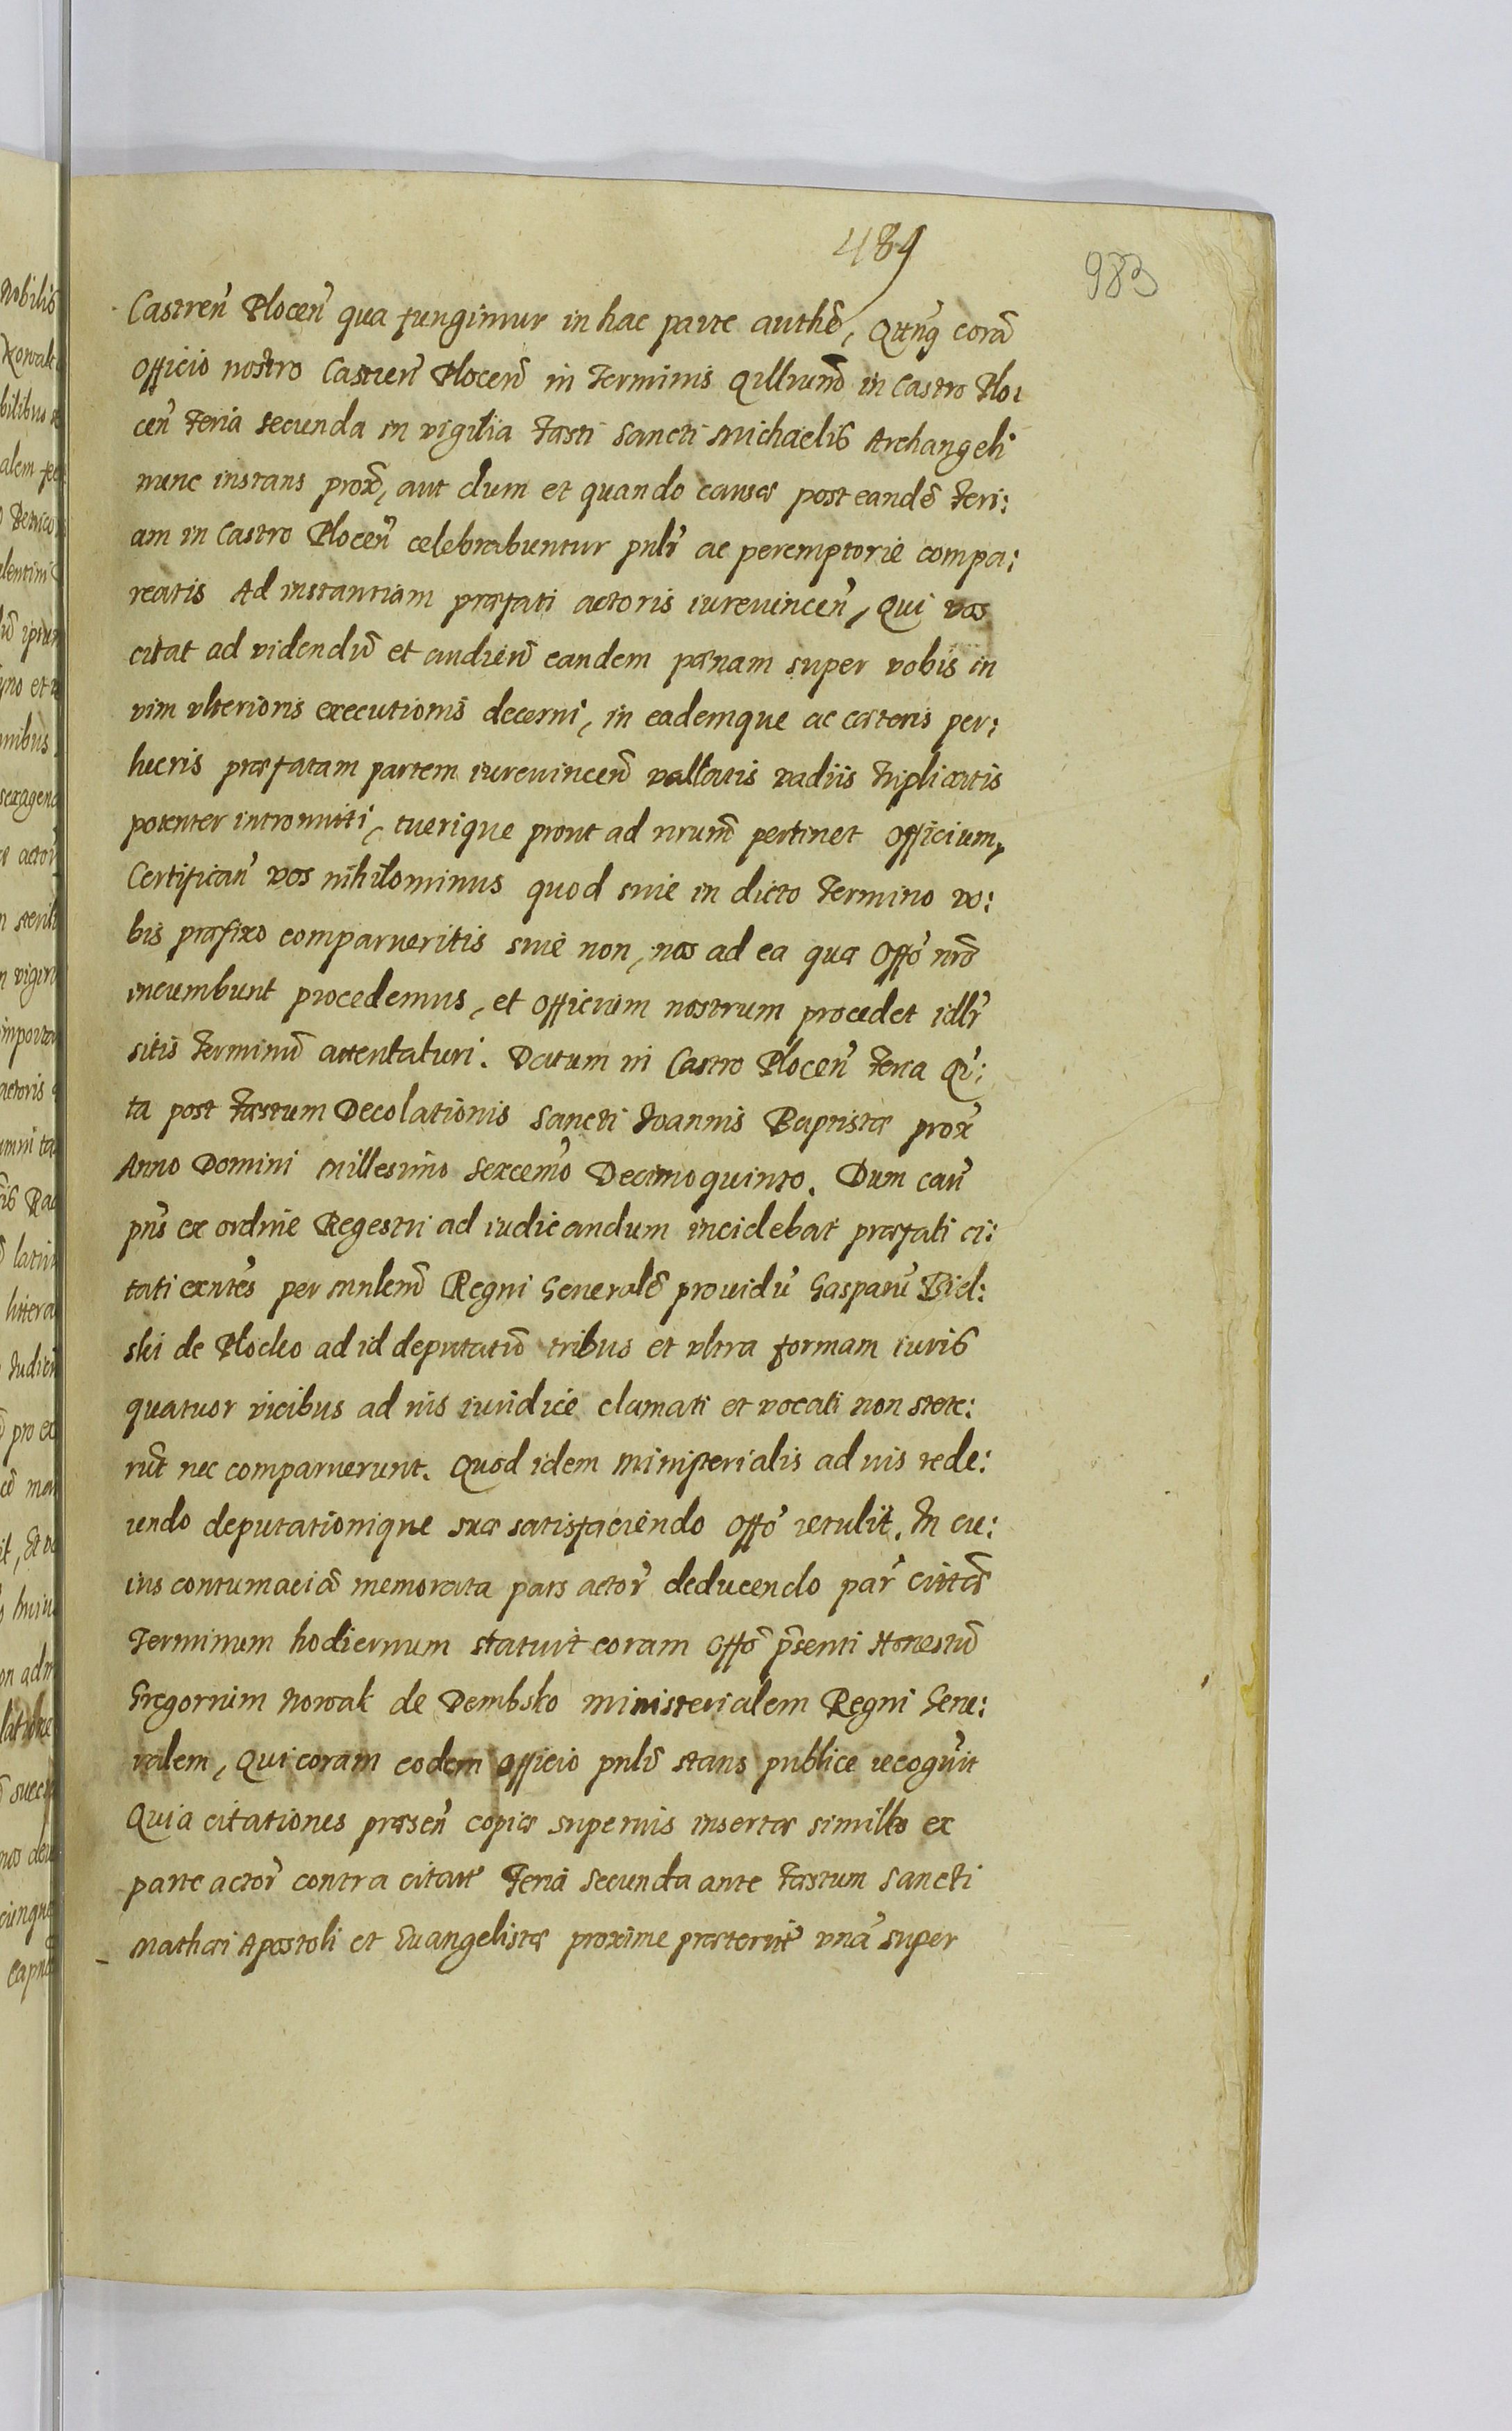 489
983
Castren̄ Plocen̄ qua fungimur in hac parte authē, Qtn̄g corā
Officio nostro Castren̄ Plocen̄ in Terminis Qllrum̄ in Castro Plo:
cen̄ Feria secunda in vigilia Fæsti Sancti Michaelis Archangeli
nunc instans prox̄, aut dum et quando causæ post eandē Feri:
am in Castro Plocen̄ celebrabuntur pnlr̄ ac peremptorie compa:
reatis Ad instantiam præfati actoris iureuincen̄, Qui vos
citat ad videndū et audien̄ eandem pænam super vobis in
vim vlterioris executionis decerni, in eademque ac cæteris per:
lucris præfatam partem iureuincen̄ vallatis vadiis triplicatis
potenter intromitti, tuerique prout ad nrum̄ pertinet Officium,
Certifican̄ vos nihilominus quod siue in dicto Termino vo:
bis præfixo comparueritis siue non, nos ad ea quæ Offō nrō
incumbunt procedemus, et Officium nostrum procedet idlr̄
sitis Terminū attentaturi. Datum in Castro Plocen̄ Feria Qr̄:
ta post Fæstum Decolationis Sancti Ioannis Baptistæ prox̄
Anno Domini Millesimo Sexcen̄mo Decimoquinto. Dum cau̅
pn̄s ex ordine Regestri ad iudicandum incidebat præfati ci:
tati exn̄tes per mnlem̄ Regni Generalē prouidū Gasparū Biel:
ski de Plocko ad id deputatū tribus et vltra formam iuris
quatuor vicibus ad iuis iuridice clamati et vocati non stete:
rūt nec comparuerunt. Quod idem ministerialis ad iuis rede:
undo deputationique suæ satisfaciendo Offō retulit. In cu:
ius contumaciā memorata pars actor̄ deducendo par̄ citatā
Terminum hodiernum statuit coram Offō p̄senti Honestū
Gregorium Nowak de Dembsko ministerialem Regni Gene:
ralem, Qui coram eodem Officio pnlr̄ stans publice recogūit
Quia citationes præsen̄ copiæ superius insertæ similes ex
parte actor̄ contra citat̄ Feria Secunda ante Fæstum Sancti
Mathæi Apostoli et Euangelistæ proxime præterit̄ vnā super